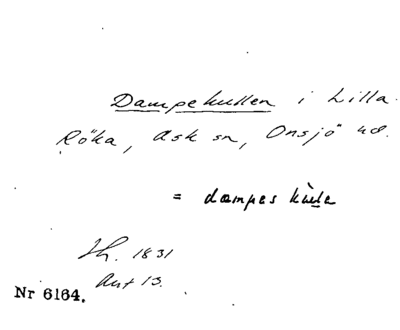 Dampekullen i Lilla
Röka, Ask sn, Onsjö hd.
= dampes
1831
Ant 13.
Nr 6164.